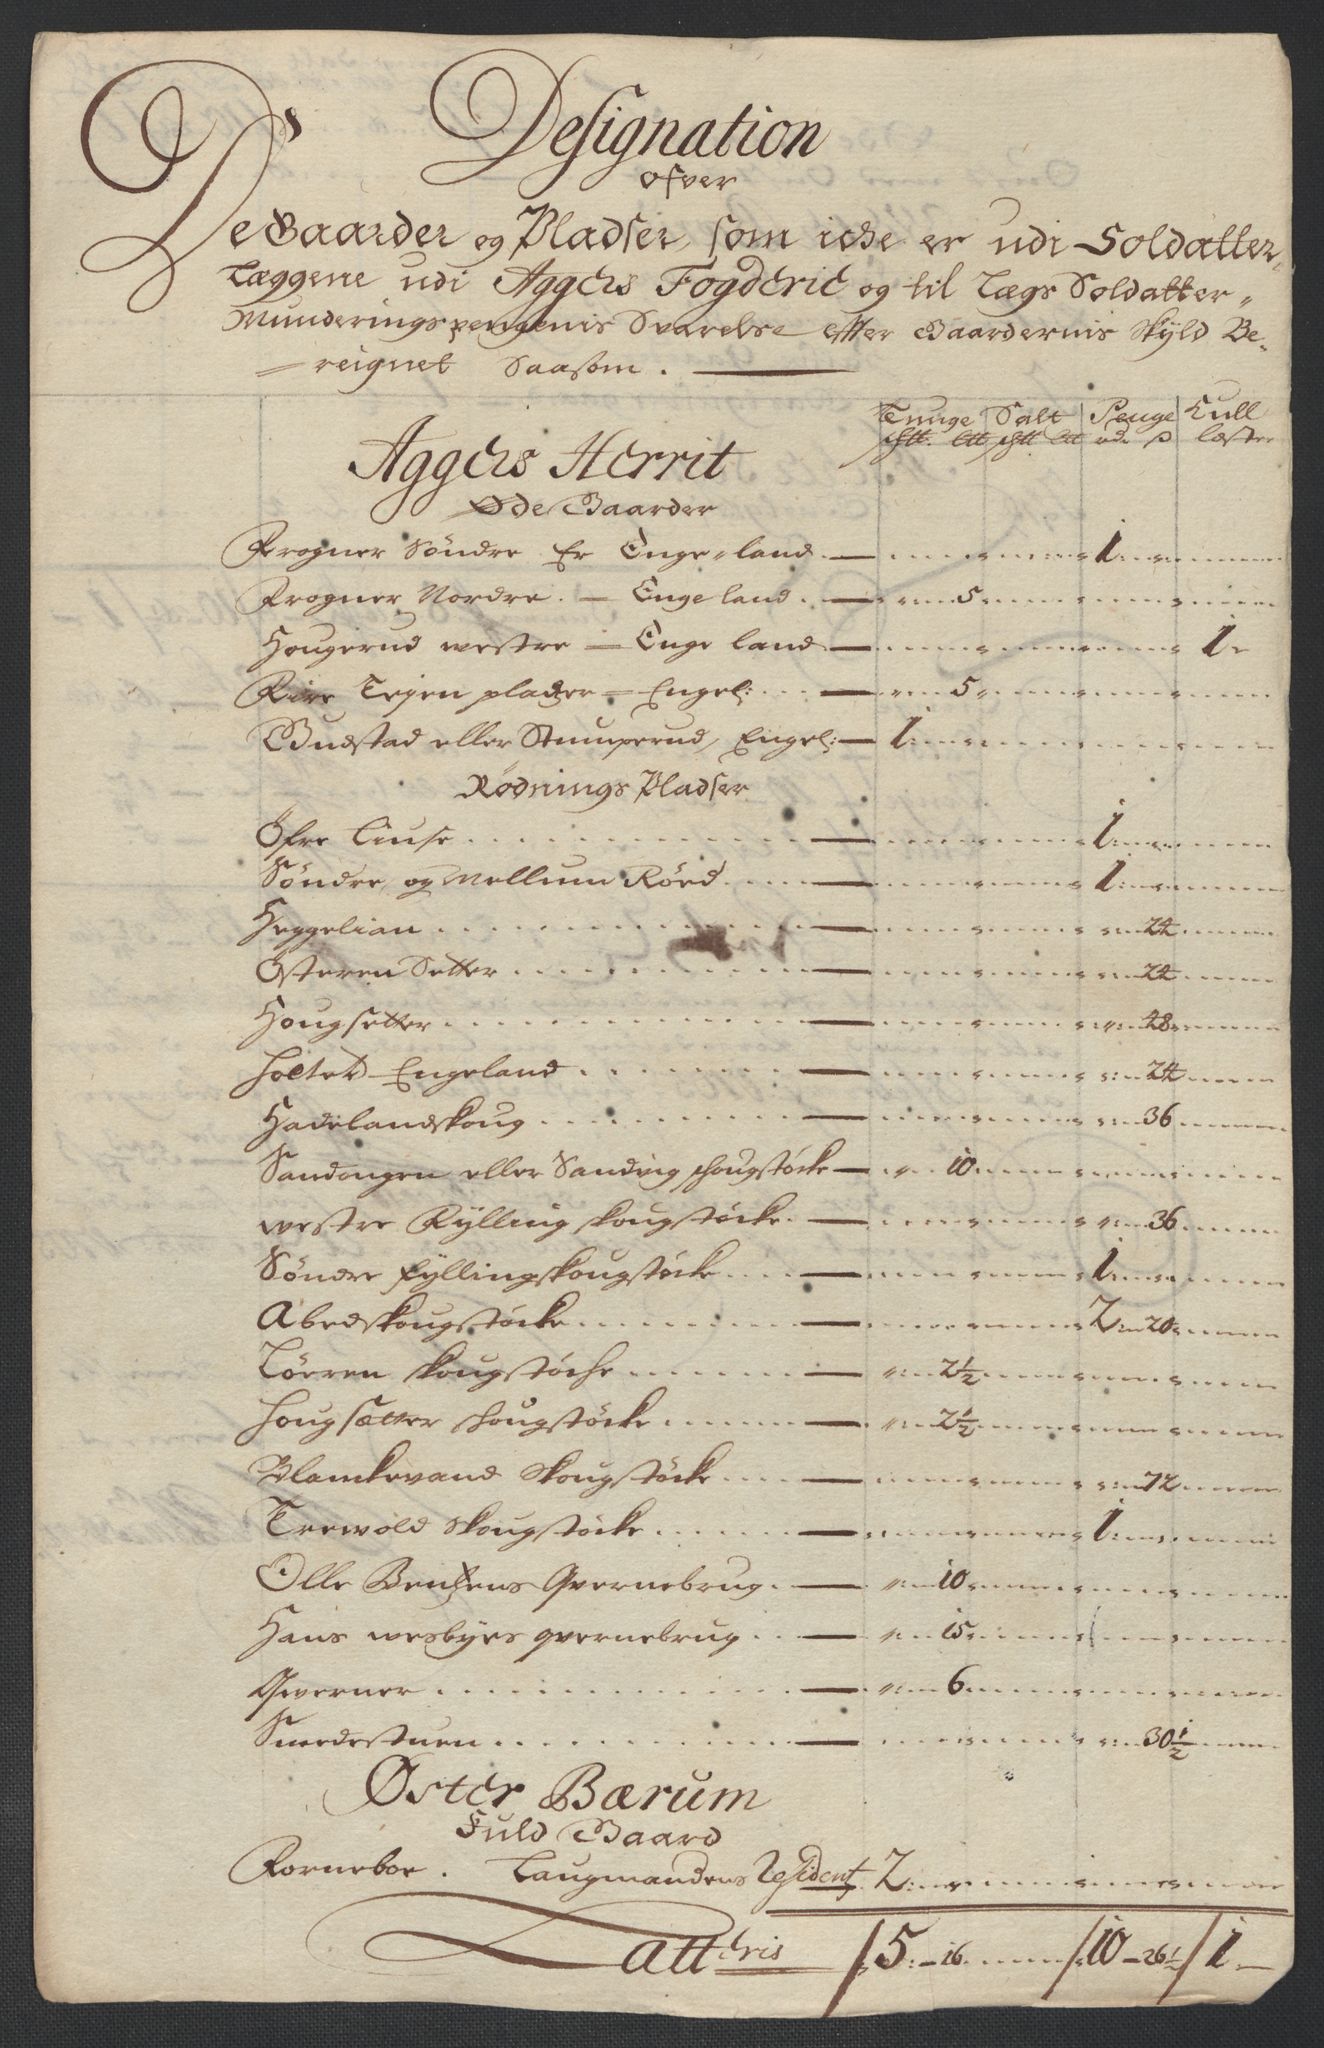 Designation
ofver
De Gaarder og Pladser, som icke er udi Soldatter-
Læggene udi Aggers Fogderie og til Lægs Soldatter-
Munderings pengenis Svarelse efter Gaardernis Skyld Be-
reignet Saasom.
Tunge Salt Penge Kull
sktt. ltt sktt ltt rd. ß læster
Aggers Herrit
Øde Gaarder
Frogner Söndre Er Enge-land 1
Frogner Nordre. — Enge land. 5
Hougerud westre — Enge land 1
Engel: 5
Budstad eller Stumperud, Engel: 1
Rødnings Pladser
Öfre Liuse 1
Söndre, og Mellum Röed 1
Heggelian 24
Österen Setter 24
Hougsetter 48
Holtet Engeland 24
Hadelandskoug 36
Sandongen eller Sandvig skougstöcke 10
westre Fylling skougstöcke. 36
Söndre fyllingskougstöcke 1
Abedskougstöcke 2 20
Lörren skougstöche 2½
Hougsætter skougstöcke 2½
Blanckevand Skougstöcke 72
Trewold Skougstöcke 1
Olle Bentzens Qvernebrug. 10
Hans wesbyes qvernebrug 15
Qwerner 6
Smedestuen 30½
Øster Bærum
Fuld Gaard
Forneboe. Laugmandens Resident 2
Latteris 5 - 16 10 - 26½ 1